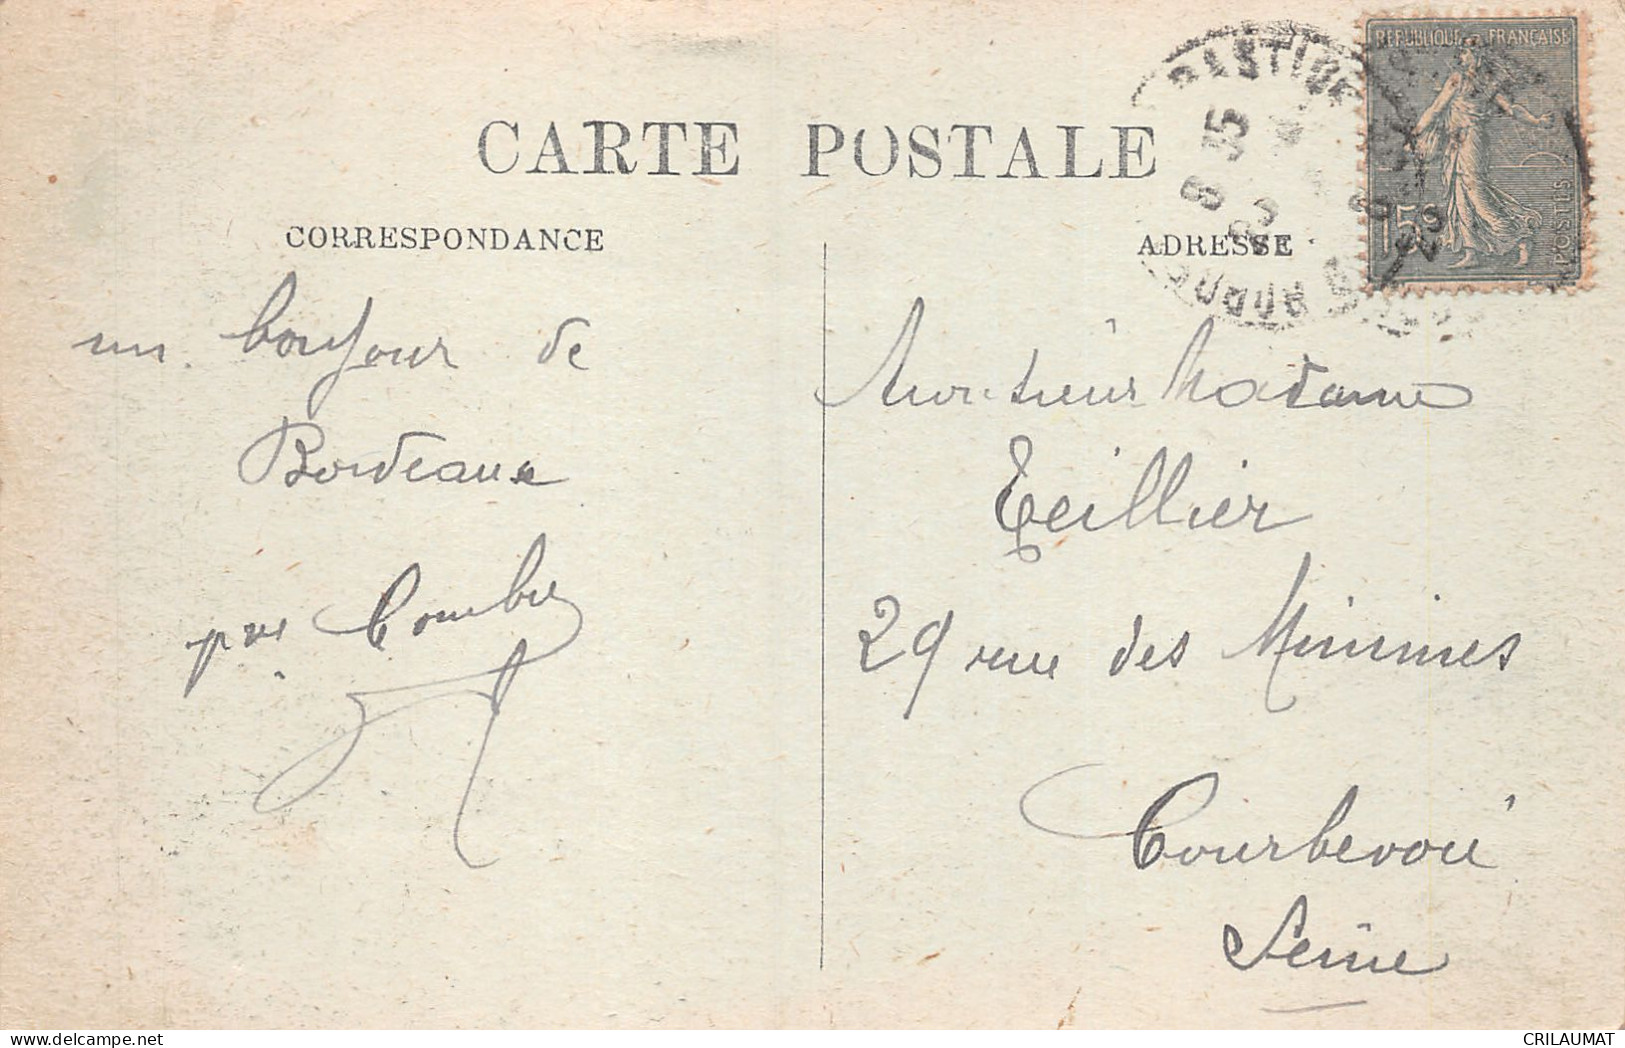 CARTE POSTALE
CORRESPONDANCE
ADRESSE
RÉPUBLIQUE FRANÇAISE
15c
POSTES
8 35
un bonjour de
Bordeaux
Monsieur Madame
Teillier
29 rue des Minimes
Courbevoie
Seine
www.delcampe.net
CRILAUMAT